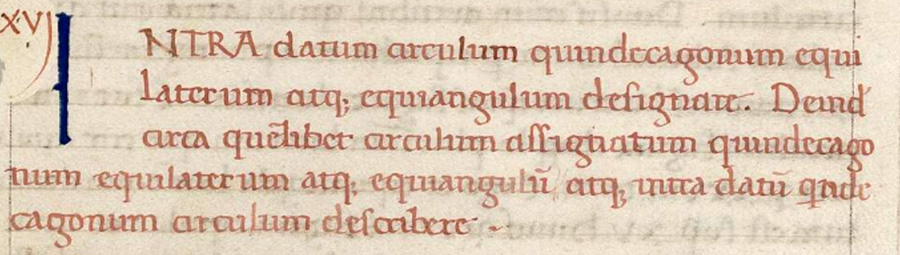 xvj INTRA datum circulum quindecagonum equi
laterum atq; equiangulum designare. Deind'
circa quēlibet circulum assignatum quindecago
num equilaterum atq; equiangulū atq; intra datū qinde
cagonum circulum describere.